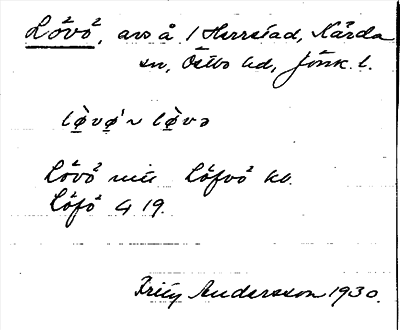 Lövö, avs å 1 Herrstad, Kärda
sn, Östbo hd, Jönk. l.
lø̀vø' ~ lø̀və
Lövö mtl Löfvö kb.
Löfö G 19.
Fritz Andersson 1930.